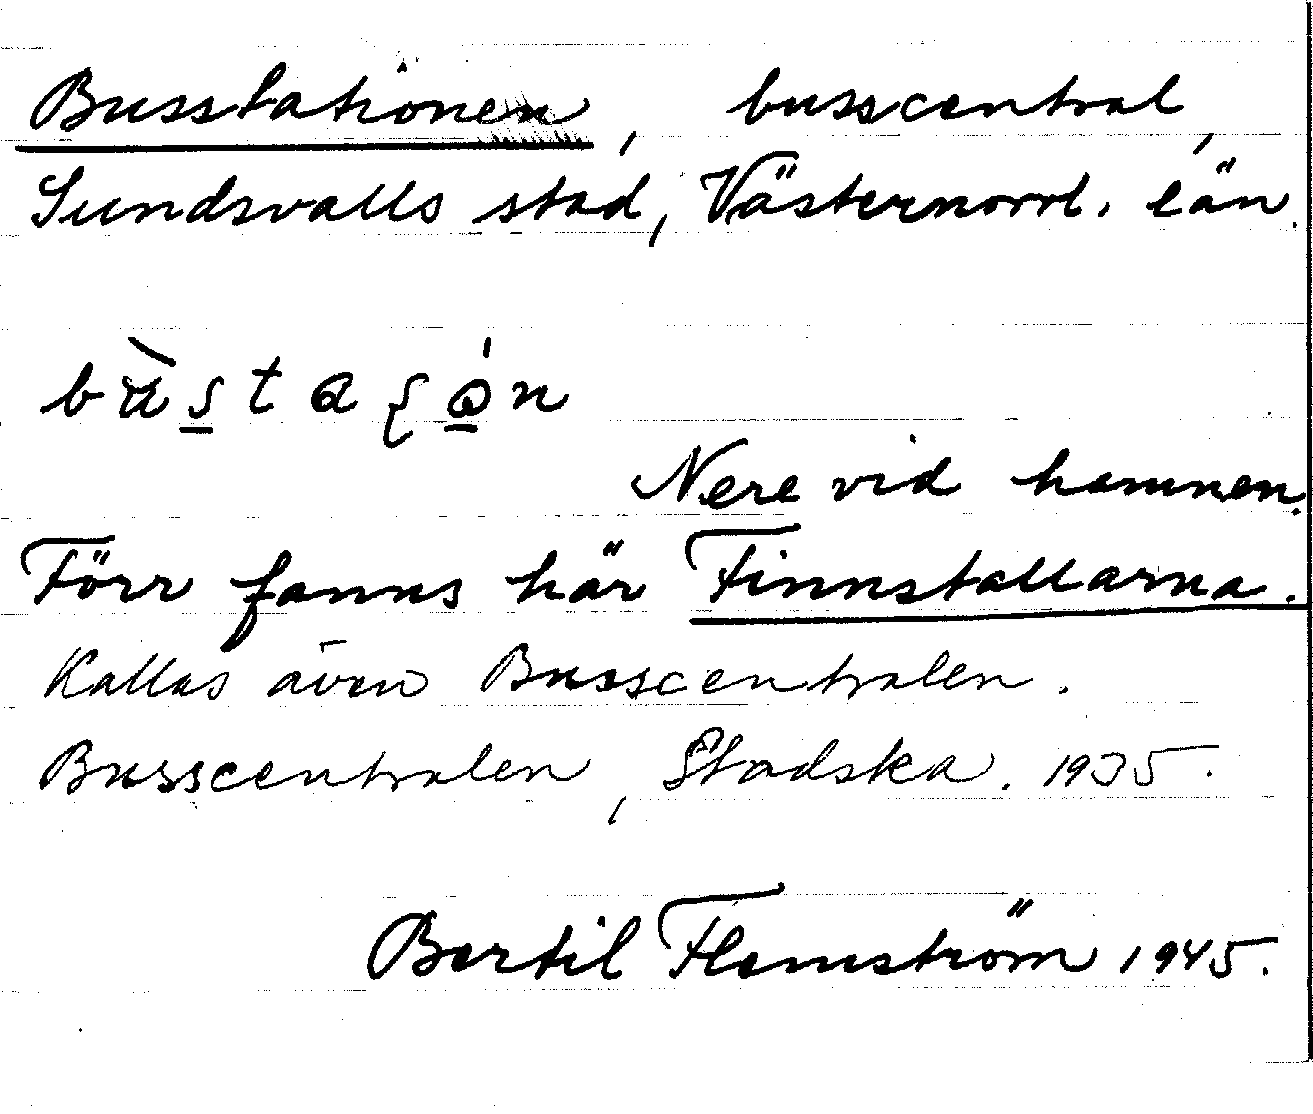 Busstationen, busscentral,
Sundsvalls stad, Västernorrl. län.
Nere vid hamnen.
Förr fanns här Finnstallarna.
Kallas även Busscentralen.
Busscentralen, Stadska. 1935.
Bertil Flemström 1945.